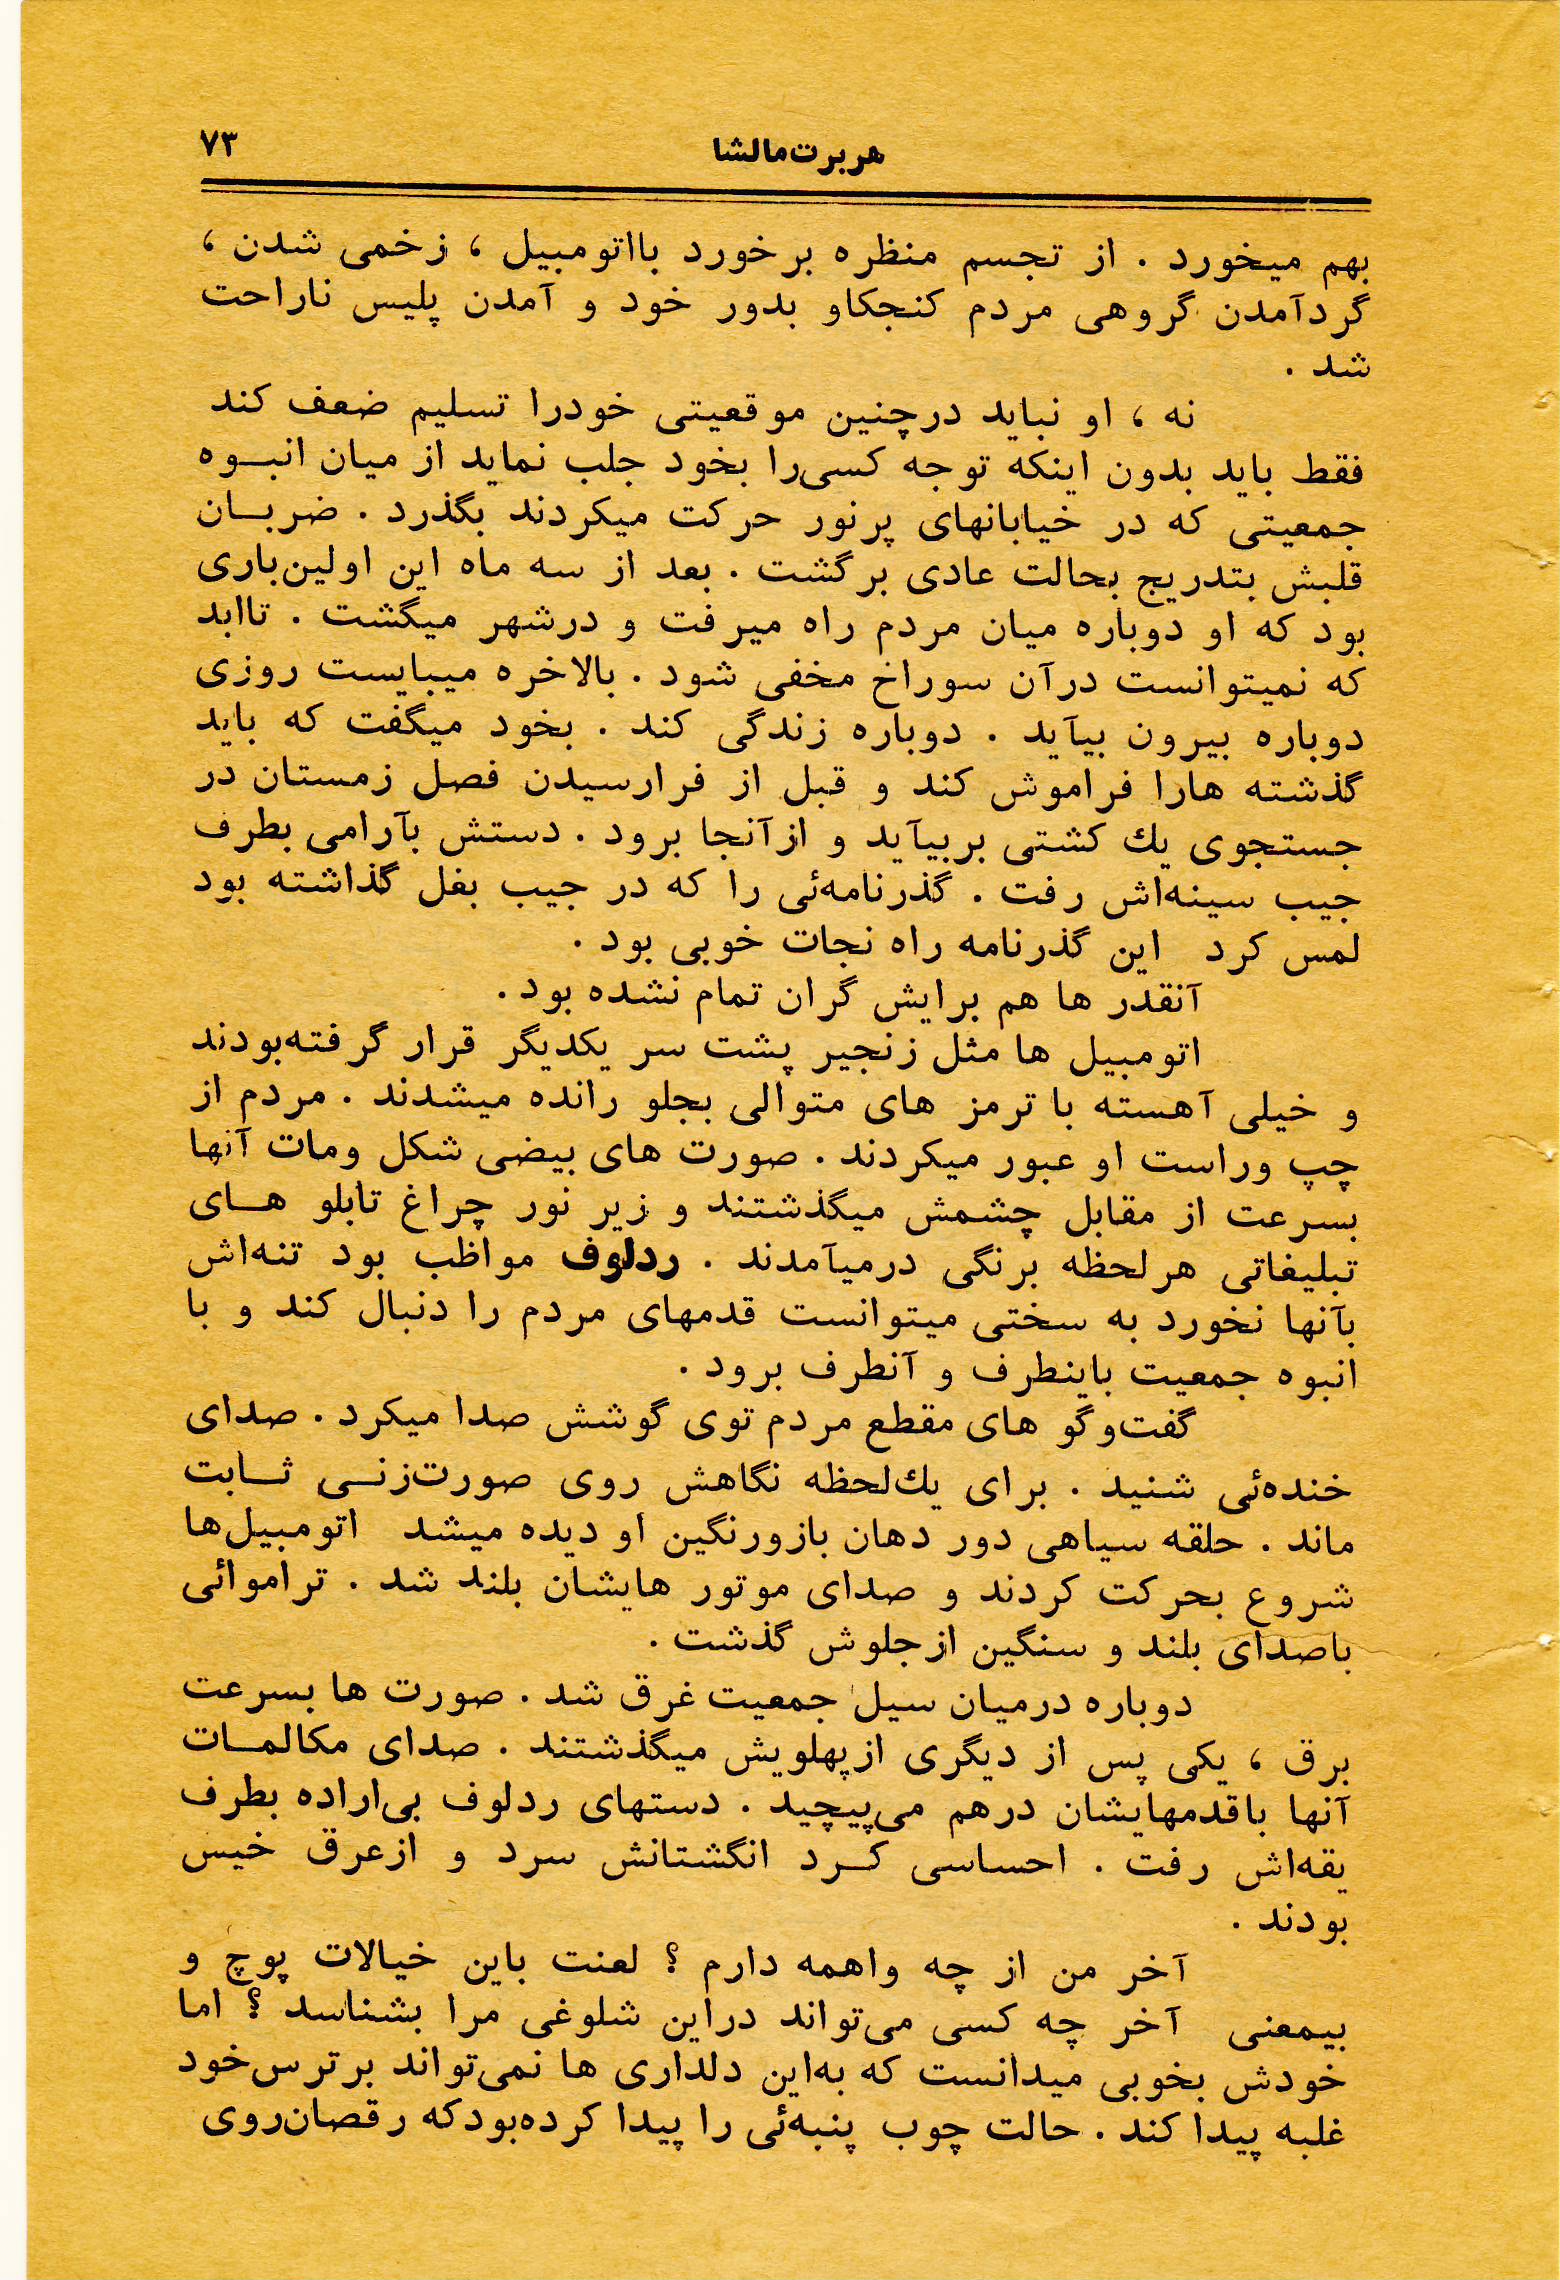 هربرت‌مالشا
۷۳
بهم میخورد . از تجسم منظره برخورد بااتومبیل ، زخمی شدن ،
گردآمدن گروهی مردم کنجکاو بدور خود و آمدن پلیس ناراحت
شد .
نه ، او نباید درچنین موقعیتی خودرا تسلیم ضعف کند
فقط باید بدون اینکه توجه کسی‌را بخود جلب نماید از میان انبـوه
جمعیتی که در خیابانهای پرنور حرکت میکردند بگذرد . ضربـان
قلبش بتدریج بحالت عادی برگشت . بعد از سه ماه این اولین‌باری
بود که او دوباره میان مردم راه میرفت و درشهر میگشت . تاابد
که نمیتوانست درآن سوراخ مخفی شود . بالاخره میبایست روزی
دوباره بیرون بیآید . دوباره زندگی کند . بخود میگفت که باید
گذشته هارا فراموش کند و قبل از فرارسیدن فصل زمستان در
جستجوی یك کشتی بربیآید و ازآنجا برود . دستش بآرامی بطرف
جیب سینه‌اش رفت . گذرنامه‌ئی را که در جیب بغل گذاشته بود
لمس کرد این گذرنامه راه نجات خوبی بود .
آنقدر ها هم برایش گران تمام نشده بود .
اتومبیل ها مثل زنجیر پشت سر یکدیگر قرار گرفته‌بودند
و خیلی آهسته با ترمز های متوالی بجلو رانده میشدند . مردم از
چپ وراست او عبور میکردند . صورت های بیضی شکل ومات آنها
بسرعت از مقابل چشمش میگذشتند و زیر نور چراغ تابلو هـای
تبلیغاتی هرلحظه برنگی درمیآمدند . ردلوف مواظب بود تنه‌اش
بآنها نخورد به سختی میتوانست قدمهای مردم را دنبال کند و با
انبوه جمعیت باینطرف و آنطرف برود .
گفت‌وگو های مقطع مردم توی گوشش صدا میکرد . صدای
خنده‌ئی شنید . برای یك‌لحظه نگاهش روی صورت‌زنـی ثـابت
ماند . حلقه سیاهی دور دهان بازورنگین او دیده میشد اتومبیل‌ها
شروع بحرکت کردند و صدای موتور هایشان بلند شد . تراموائی
باصدای بلند و سنگین ازجلوش گذشت .
دوباره درمیان سیل جمعیت غرق شد . صورت ها بسرعت
برق ، یکی پس از دیگری ازپهلویش میگذشتند . صدای مکالمـات
آنها باقدمهایشان درهم می‌پیچید . دستهای ردلوف بی‌اراده بطرف
یقه‌اش رفت . احساسی کـرد انگشتانش سرد و ازعرق خیس
بودند .
آخر من از چه واهمه دارم ؟ لعنت باین خیالات پوچ و
بیمعنی آخر چه کسی می‌تواند دراین شلوغی مرا بشناسد ؟ اما
خودش بخوبی میدانست که به‌این دلداری ها نمی‌تواند برترس‌خود
غلبه پیدا کند . حالت چوب پنبه‌ئی را پیدا کرده‌بودکه رقصان‌روی